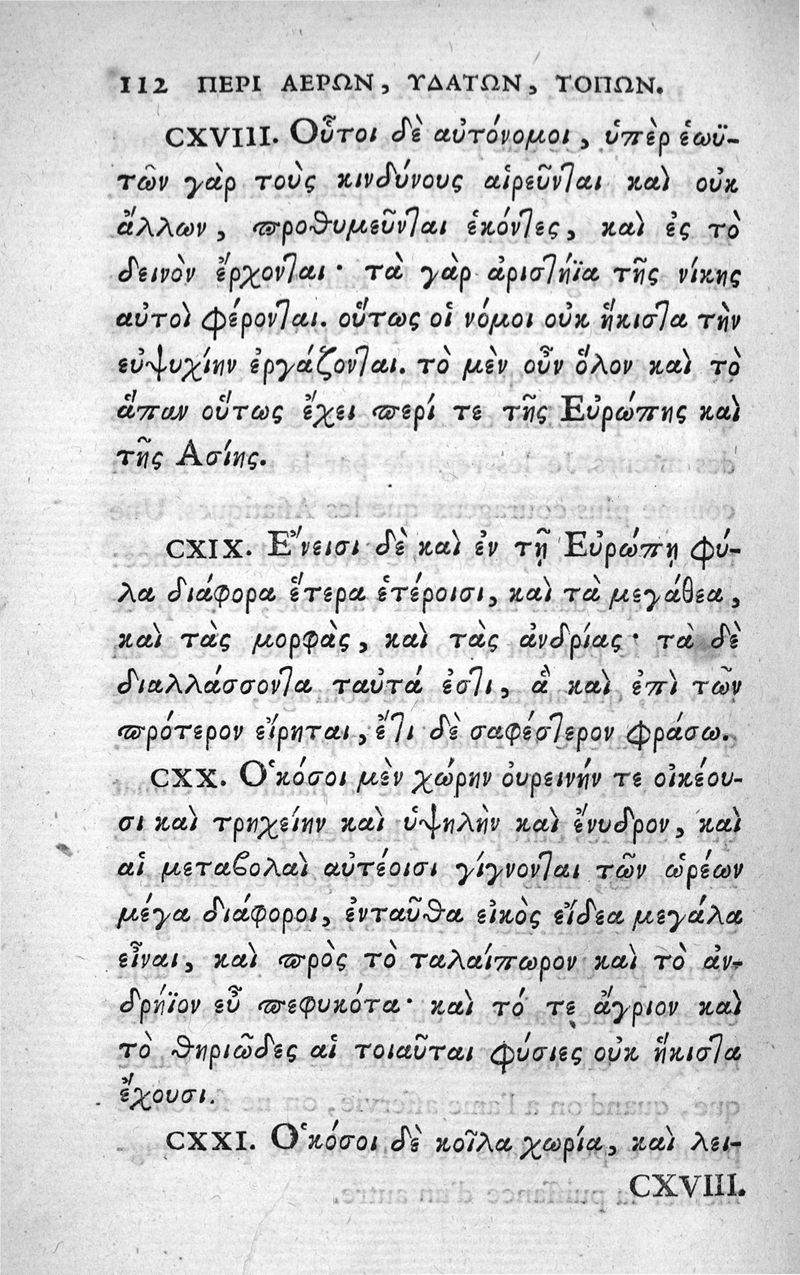 112 ΠΕΡΙ ΑΕΡΩΝ, ΥΔΑΤΩΝ, ΤΟΠΩΝ.
CXVIII. Οὗτοι δὲ αὐτόνομοι, ὑπὲρ ἑωϋ-
τῶν γὰρ τοὺς κινδύνους αἱρεῦνται καὶ οὐκ
ἄλλων, προθυμεῦνται ἑκόντες, καὶ ἐς τὸ
δεινὸν ἔρχονται· τὰ γὰρ ἀριστήϊα τῆς νίκης
αὐτοὶ φέρονται. οὕτως οἱ νόμοι οὐκ ἥκιστα τὴν
εὐψυχίην ἐργάζονται. τὸ μὲν οὖν ὅλον καὶ τὸ
ἅπαν οὕτως ἔχει περί τε τῆς Εὐρώπης καὶ
τῆς Ασίης.
CXIX. Ἔνεισι δὲ καὶ ἐν τῇ Εὐρώπῃ φύ-
λα διάφορα ἕτερα ἑτέροισι, καὶ τὰ μεγάθεα,
καὶ τὰς μορφὰς, καὶ τὰς ἀνδρίας· τὰ δὲ
διαλλάσσοντα ταύτά ἐστι, ἃ καὶ ἐπὶ τῶν
πρότερον εἴρηται, ἔτι δὲ σαφέστερον φράσω.
CXX. Ὁκόσοι μὲν χώρην ὀυρεινήν τε οἰκέου-
σι καὶ τρηχείην καὶ ὑψηλὴν καὶ ἔνυδρον, καὶ
αἱ μεταβολαὶ αὐτέοισι γίγνονται τῶν ὡρέων
μέγα διάφοροι, ἐνταῦθα εἰκὸς εἴδεα μεγάλα
εἶναι, καὶ πρὸς τὸ ταλαίπωρον καὶ τὸ ἀν-
δρήϊον εὖ πεφυκότα· καὶ τό τε ἄγριον καὶ
τὸ θηριῶδες αἱ τοιαῦται φύσιες οὐκ ἥκιστα
ἔχουσι.
CXXI. Ὁκόσοι δὲ κοῖλα χωρία, καὶ λει-
CXVIII.